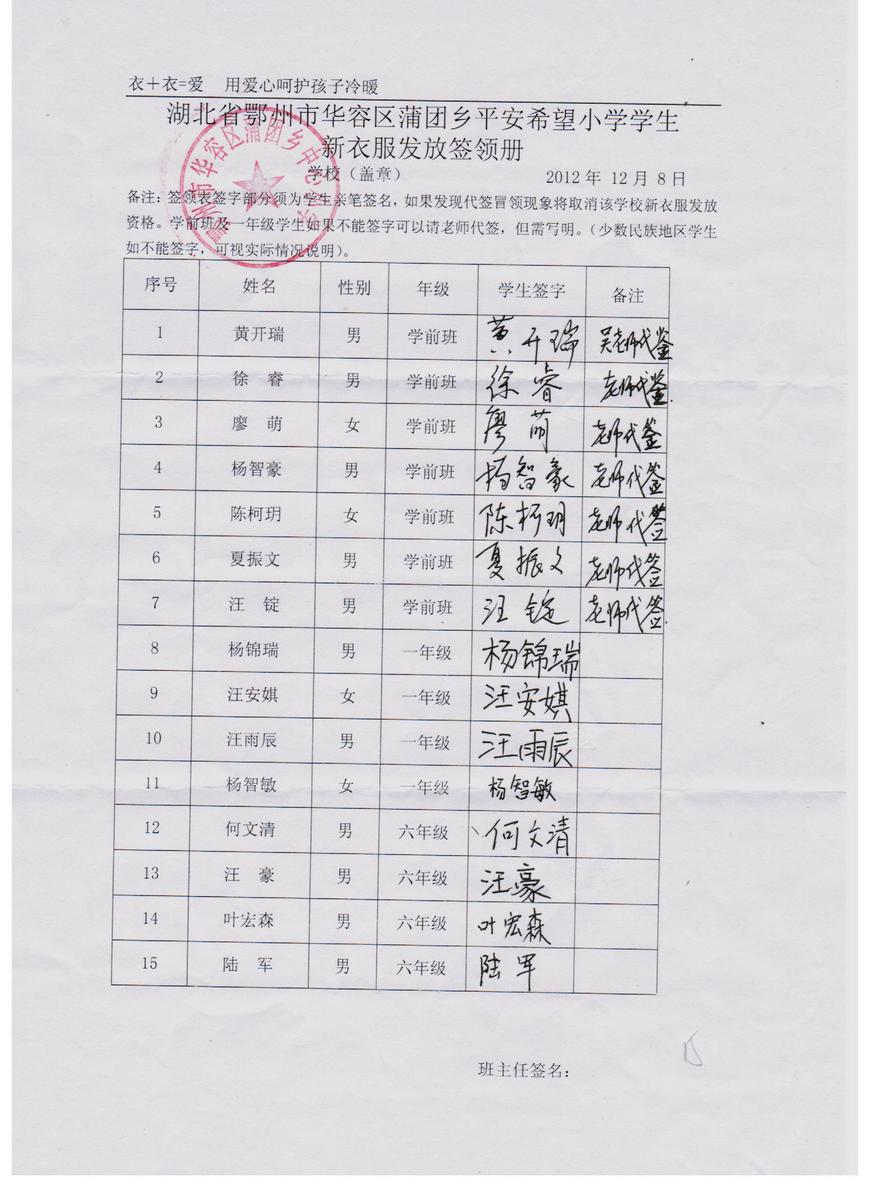 衣+衣=爱 用爱心呵护孩子冷暖
湖北省鄂州市华容区蒲团乡平安希望小学学生
新衣服发放签领册
学校（盖章） 2012 年 12 月 8 日
鄂州市华容区蒲团乡中心小学
备注：签领表签字部分须为学生亲笔签名，如果发现代签冒领现象将取消该学校新衣服发放
资格。学前班及一年级学生如果不能签字可以请老师代签，但需写明。（少数民族地区学生
如不能签字，可视实际情况说明）。
序号 姓名 性别 年级 学生签字 备注
1 黄开瑞 男 学前班 黄开瑞 吴老师代签
2 徐 睿 男 学前班 徐睿 老师代签
3 廖 萌 女 学前班 廖萌 老师代签
4 杨智豪 男 学前班 杨智豪 老师代签
5 陈柯玥 女 学前班 陈柯玥 老师代签
6 夏振文 男 学前班 夏振文 老师代签
7 汪 锭 男 学前班 汪锭 老师代签
8 杨锦瑞 男 一年级 杨锦瑞
9 汪安娸 女 一年级 汪安娸
10 汪雨辰 男 一年级 汪雨辰
11 杨智敏 女 一年级 杨智敏
12 何文清 男 六年级 何文清
13 汪 豪 男 六年级 汪豪
14 叶宏森 男 六年级 叶宏森
15 陆 军 男 六年级 陆军
15
班主任签名：